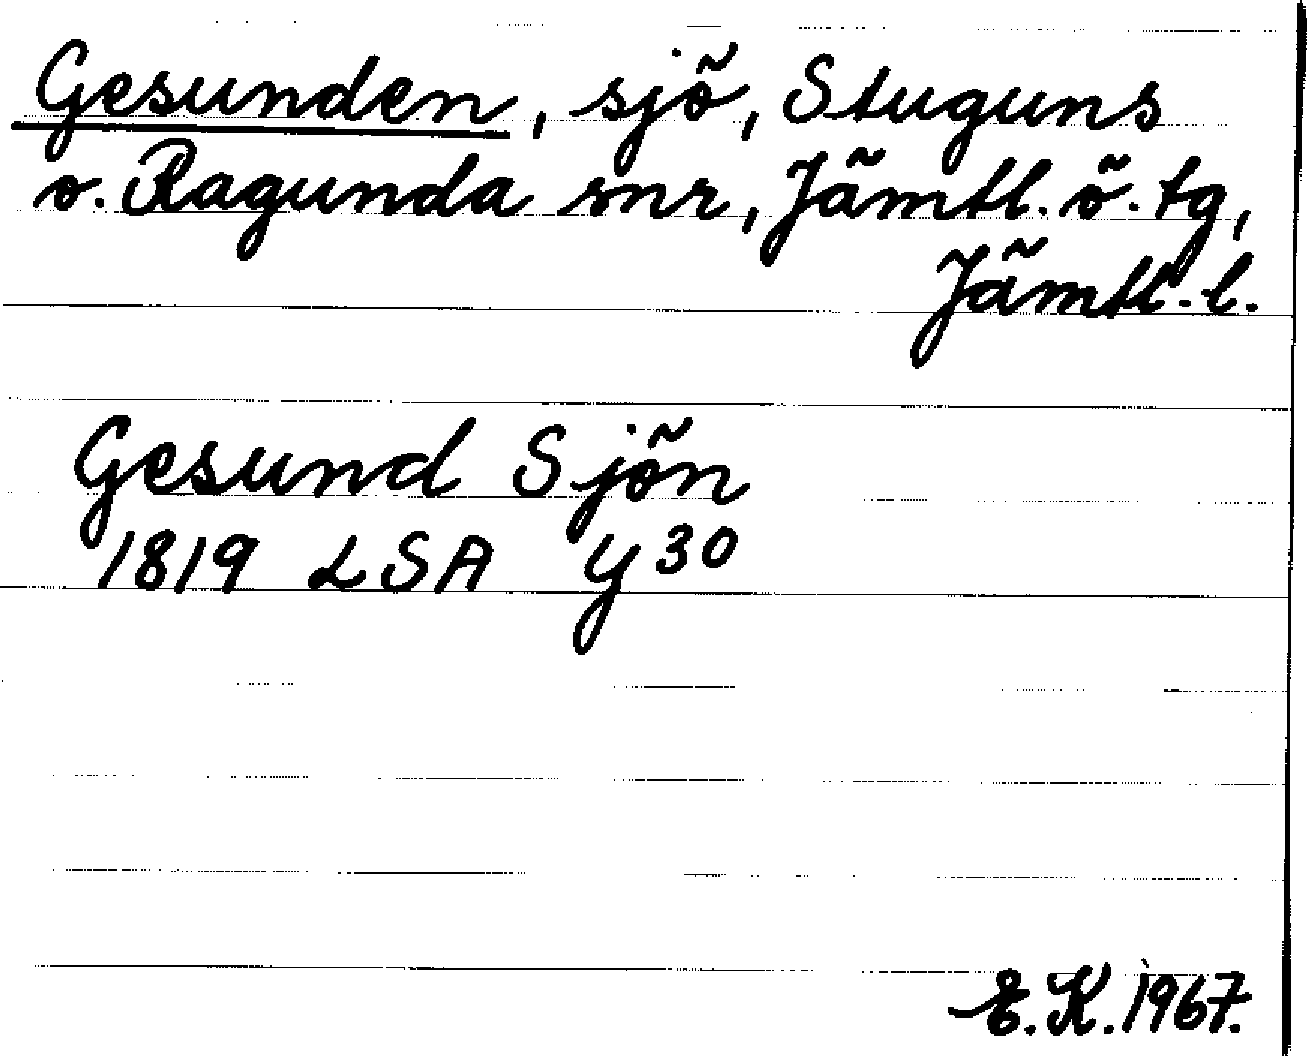 Gesunden, sjö, Stuguns
o. Ragunda snr, Jämtl. ö. tg,
Jämtl. l.
Gesund Sjön
1819 LSA Y30
E.K. 1967.